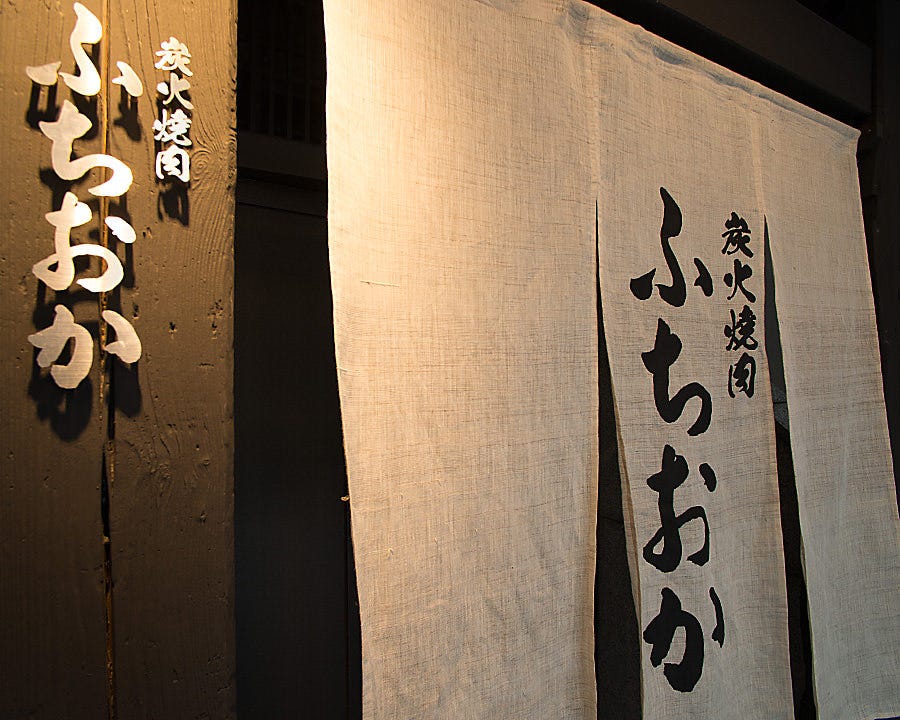 炭火焼肉
ふちおか
炭火焼肉
ふちおか